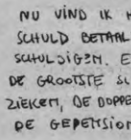 NU VIND IK
SCHULD BETAAL
SCHULDIGEN. E
DE GROOTSTE
ZIEKEN, DE DOPPE
DE GEPENSION